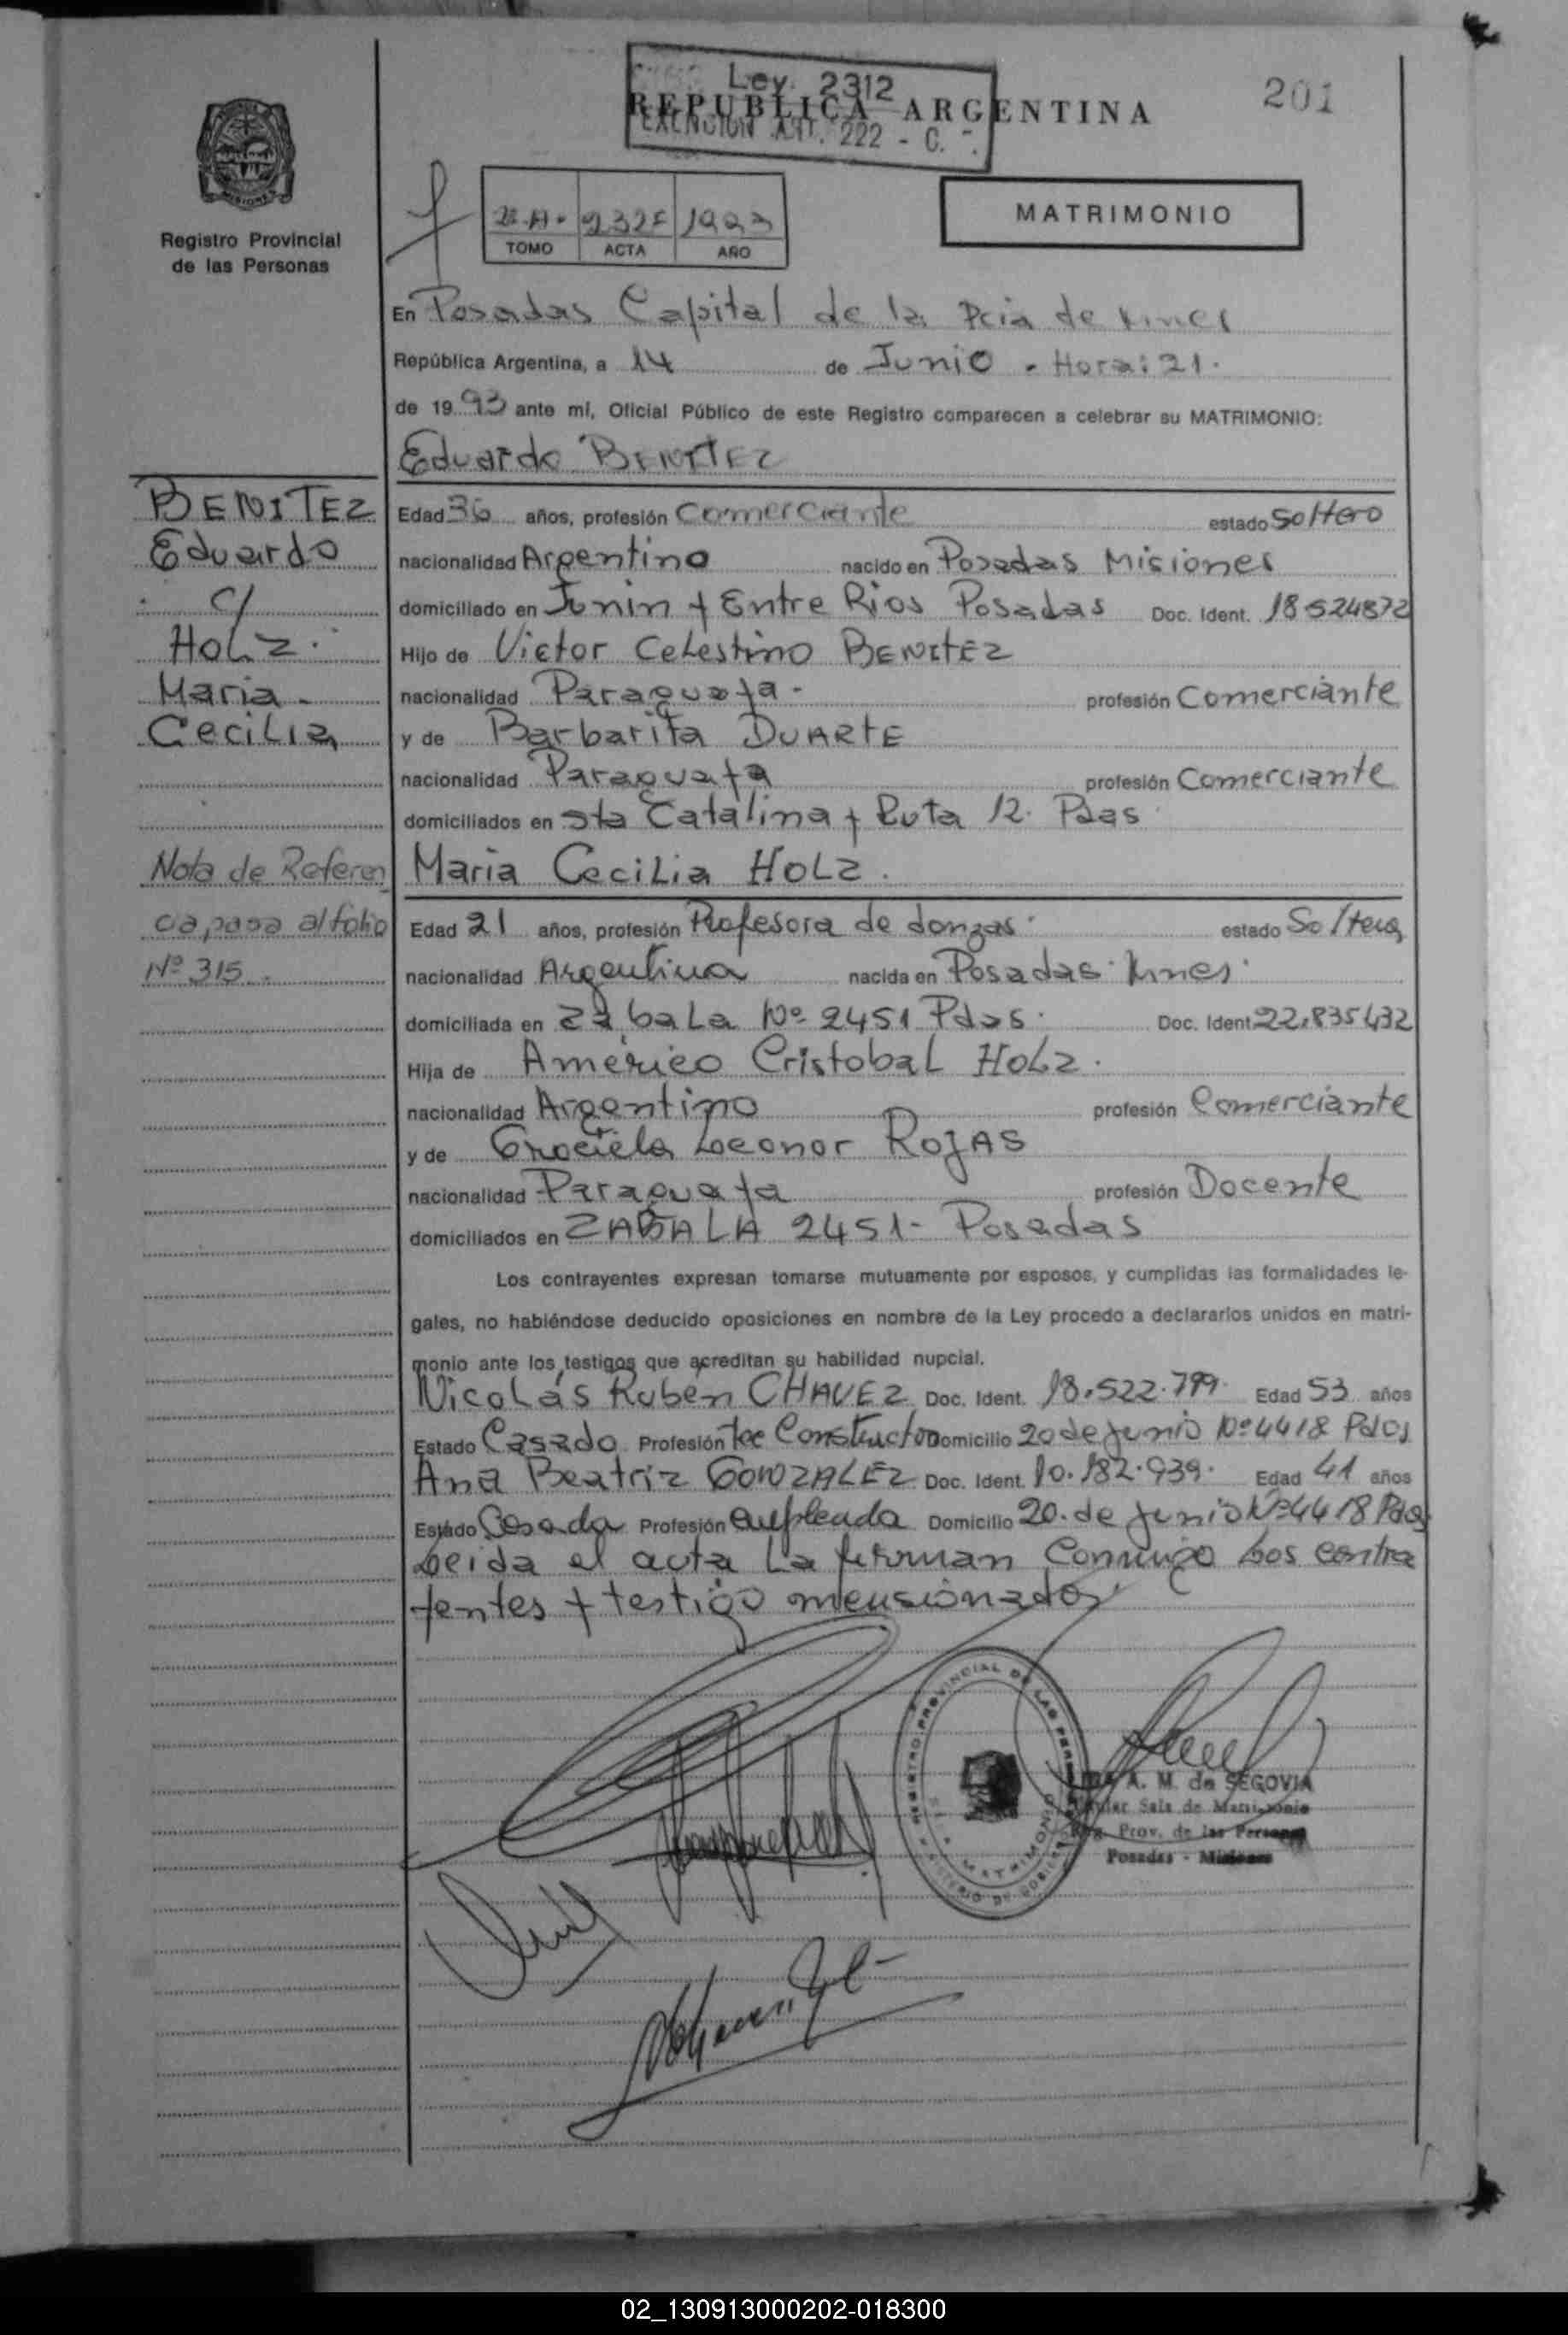 Ley. 2312
REPUBLICA ARGENTINA
201
EXENCION ART. 222 - C.
MATRIMONIO
1993
TOMO ACTA AÑO
Registro Provincial
de las Personas
En Posadas Capital de la Pcia de
República Argentina, a 14 de Junio - Hora: 21.
de 1993 ante mí, Oficial Público de este Registro comparecen a celebrar su MATRIMONIO:
Eduardo BENITEZ
BENITEZ
Eduardo
c/
HOLZ.
Maria
Cecilia
Nota de Referen
cia pasa al folio
Nº 315.
Edad 36 años, profesión Comerciante estado Soltero
nacionalidad Argentino nacido en Posadas Misiones
domiciliado en Junin y Entre Rios Posadas Doc. Ident. 18524872
Hijo de Victor Celestino BENITEZ
nacionalidad Paraguaya - profesión Comerciante
y de Barbarita DUARTE
nacionalidad Paraguaya profesión Comerciante
domiciliados en Sta Catalina y Ruta 12. Pdas
Maria Cecilia HOLZ.
Edad 21 años, profesión Profesora de danzas. estado Soltera
nacionalidad Argentina nacida en Posadas. Mnes.
domiciliada en Zabala Nº 2451 Pdas. Doc. Ident. 22.835432
Hija de Américo Cristobal HOLZ.
nacionalidad Argentino profesión Comerciante
y de Graciela Leonor ROJAS
nacionalidad Paraguaya profesión Docente
domiciliados en ZABALA 2451- Posadas
Los contrayentes expresan tomarse mutuamente por esposos, y cumplidas las formalidades le-
gales, no habiéndose deducido oposiciones en nombre de la Ley procedo a declararlos unidos en matri-
monio ante los testigos que acreditan su habilidad nupcial.
Nicolás Ruben CHAVEZ Doc. Ident. 18.522.799. Edad 53 años
Estado Casado Profesión Tec Constructor Domicilio 20 de junio Nº 4418 Pdas
Ana Beatriz GONZALEZ Doc. Ident. 10.182.939. Edad 41 años
Estado Casada Profesión empleada Domicilio 20. de junio Nº 4418 Pdas
Leida el acta la firman Conmigo Los contra
yentes y testigo mensionados.
REGISTRO PROVINCIAL DE LAS PERSONAS
MATRIMONIO
A. M. de SEGOVIA
Sala de Matrimonio
Reg. Prov. de las Personas
Posadas - Misiones
02_130913000202-018300